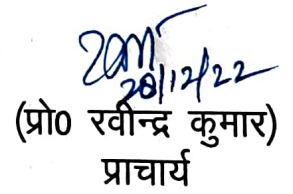 28/12/22
(प्रो0 रवीन्द्र कुमार)
प्राचार्य